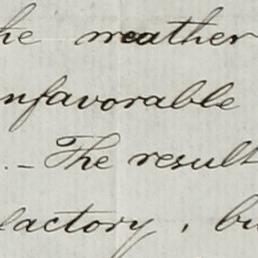 he weather
nfavorable
. - The result
factory, bu